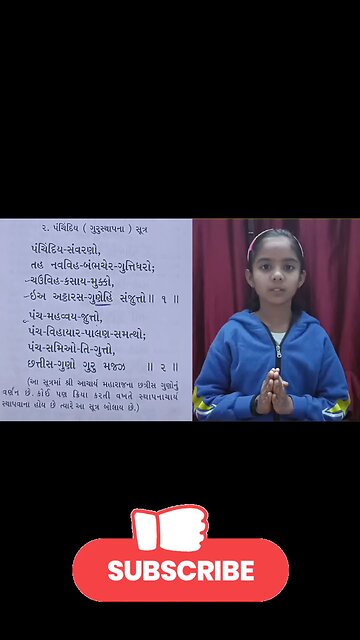 ૨. પંચિંદિય ( ગુરુસ્થાપના ) સૂત્ર
પંચિંદિય-સંવરણો,
તહ નવવિહ-બંભચેર-ગુત્તિધરો;
ચઉવિહ-કસાય-મુક્કો,
ઇઅ અટ્ઠારસ-ગુણેહિં સંજુત્તો॥ ૧ ॥
પંચ-મહવ્વય-જુત્તો,
પંચ-વિહાયાર-પાલણ-સમત્થો;
પંચ-સમિઓ-તિ-ગુત્તો,
છત્તીસ-ગુણો ગુરુ મજ્ઝ ॥ ૨ ॥
(આ સૂત્રમાં શ્રી આચાર્ય મહારાજના છત્રીસ ગુણોનું
વર્ણન છે. કોઈ પણ ક્રિયા કરતી વખતે સ્થાપનાચાર્ય
સ્થાપવાના હોય છે ત્યારે આ સૂત્ર બોલાય છે.)
SUBSCRIBE